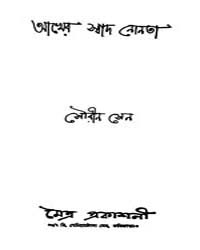 আখের স্বাদ নোনতা
সৌরীন সেন
মৈত্র প্রকাশনী